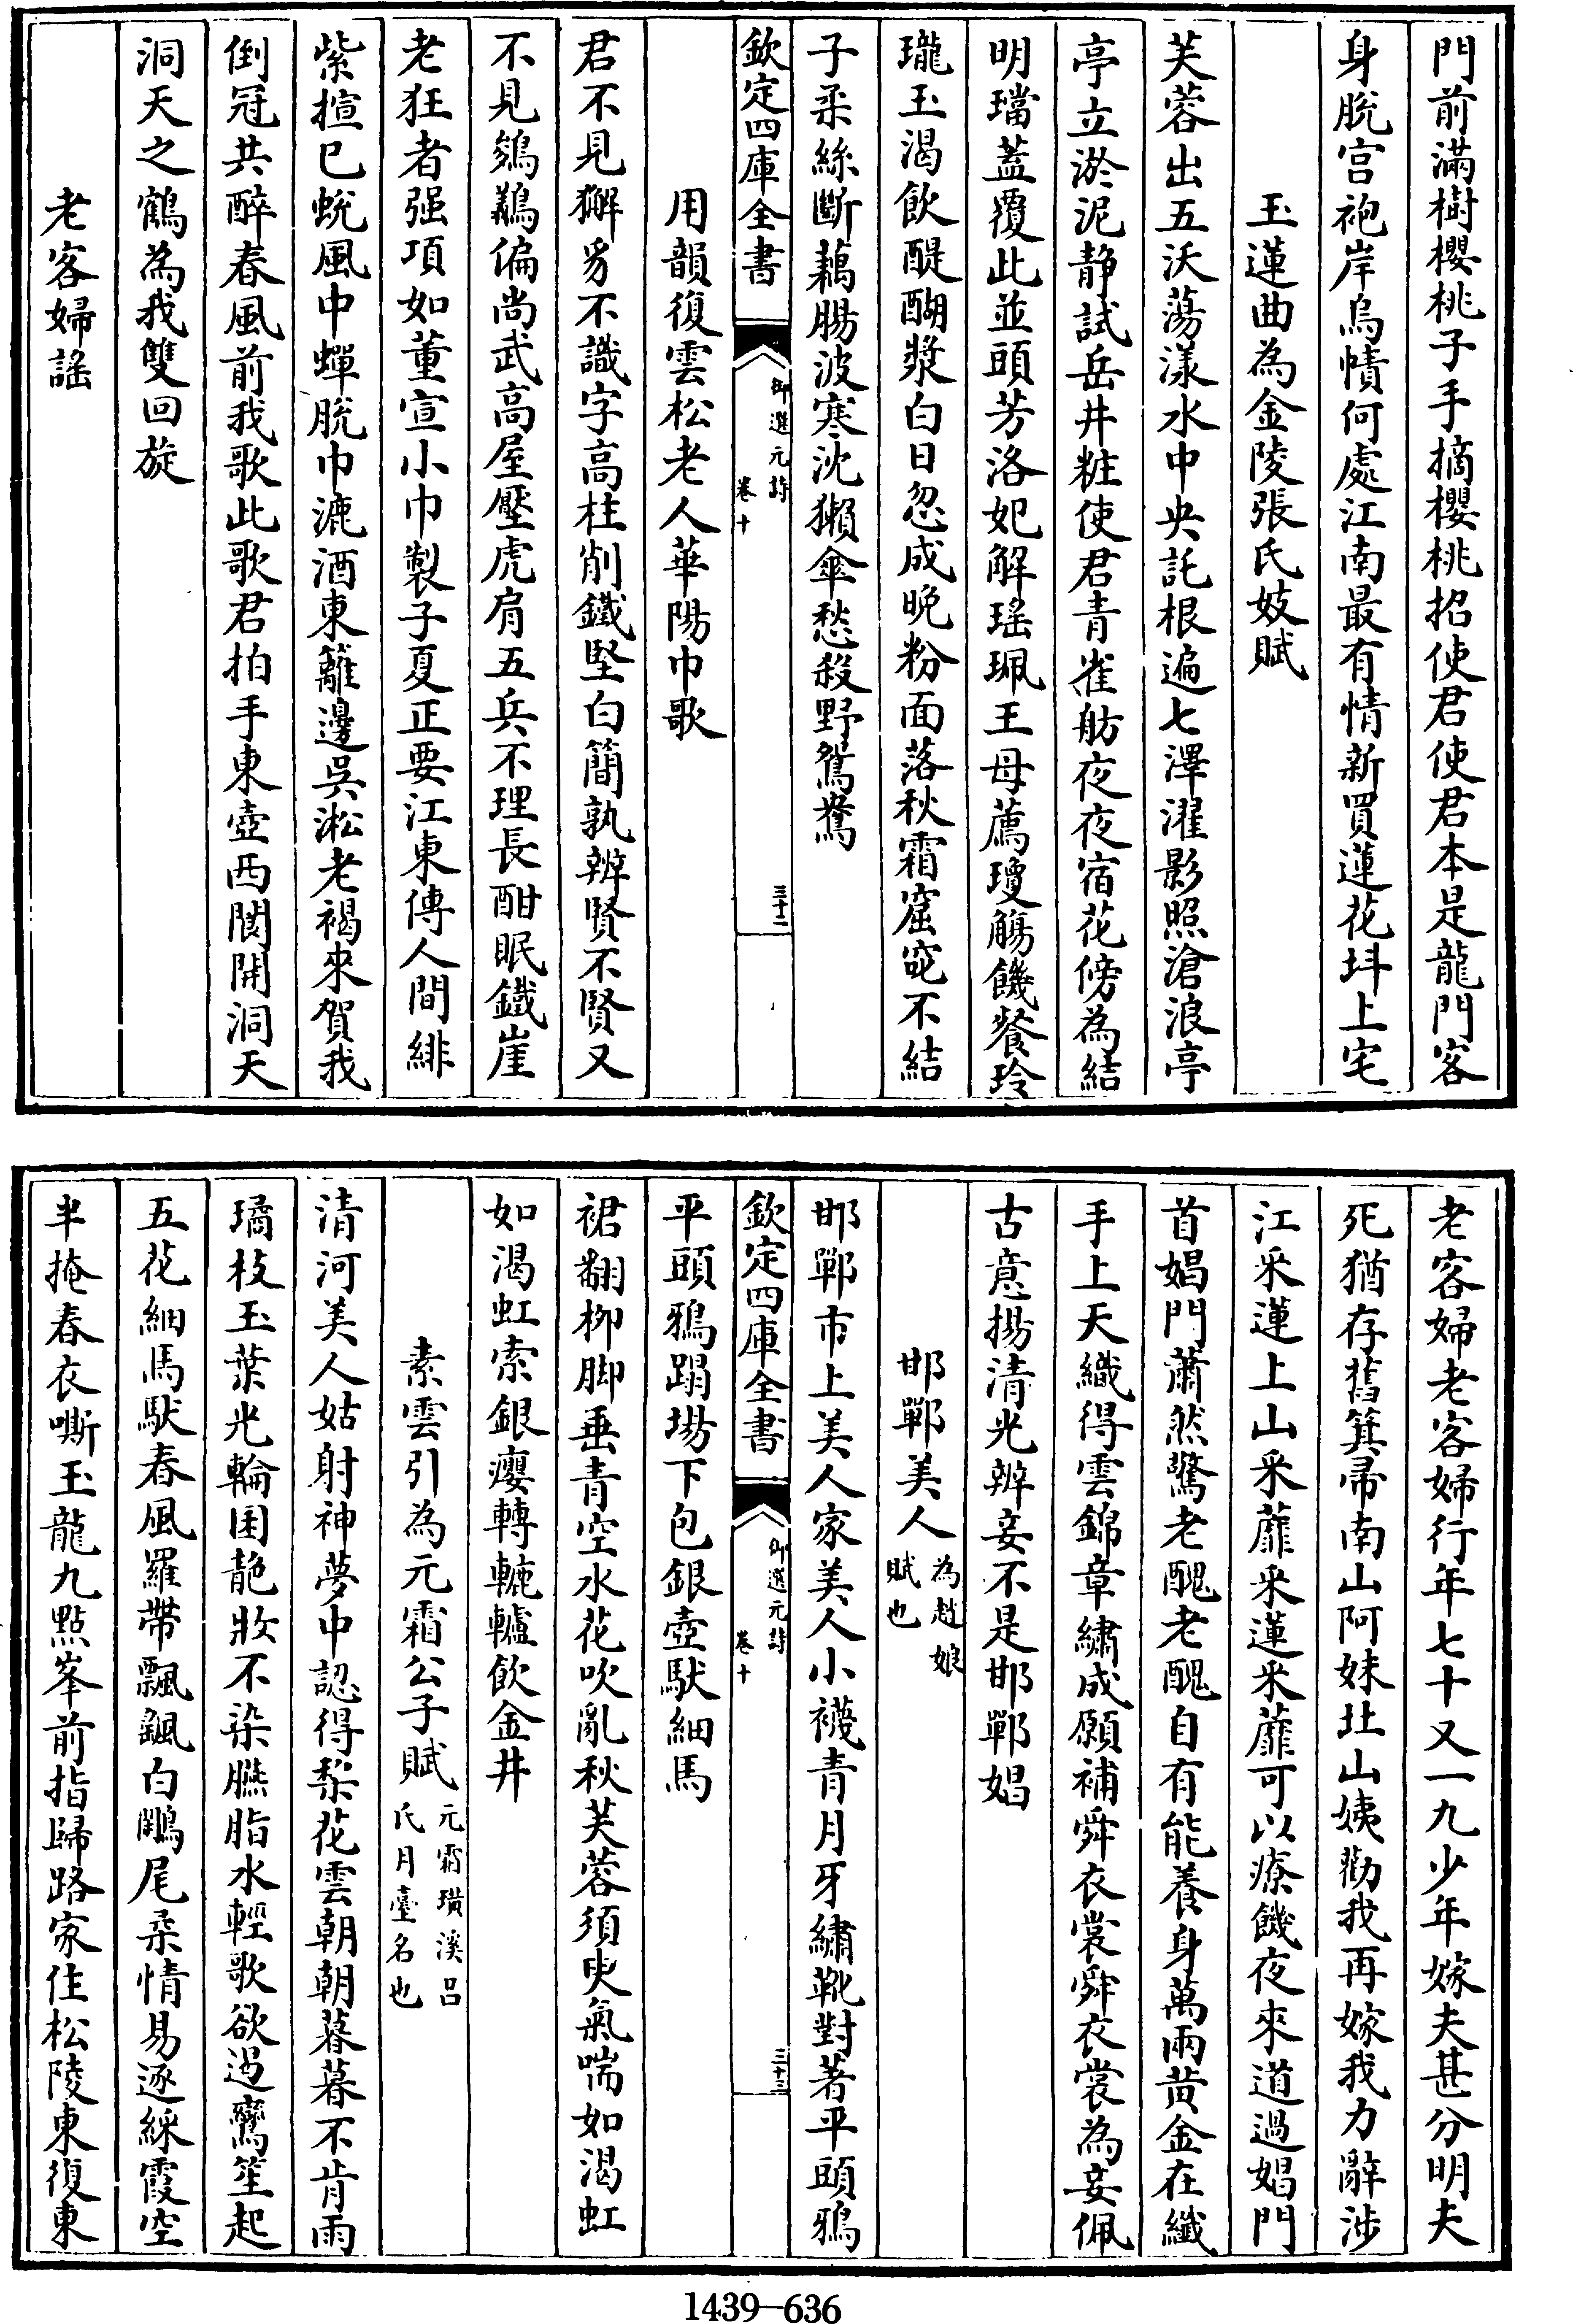 門前滿樹櫻桃子手摘櫻桃招使君使君本是龍門客
身脫宫袍岸烏幘何處江南最有情新買蓮花㘰上宅
玉蓮曲為金陵張氏妓賦
芙蓉出五沃蕩漾水中央託根遍七澤濯影照滄浪亭
亭立淤泥静試岳井粧使君青雀舫夜夜宿花傍為結
明璫蓋覆此並頭芳洛妃解瑶珮王母薦瓊觴饑餐玲
瓏玉渴飲醍醐漿白日忽成晚粉面落秋霜窟窊不結
子柔絲斷藕腸波寒沈獺傘愁殺野鴛鴦
欽定四庫全書
御選元詩
卷十
三十二
用韻復雲松老人華陽巾歌
君不見獬豸不識字高柱削鐵堅白簡孰辨賢不賢又
不見鵕鸃偏尚武高屋壓虎肩五兵不理長酣眠鐵崖
老狂者强項如董宣小巾製子夏正要江東傳人間緋
紫揎已蛻風中蟬脫巾漉酒東籬邊吳淞老褐來賀我
倒冠共醉春風前我歌此歌君拍手東壺西閡開洞天
洞天之鶴為我雙回旋
老客婦謠
老客婦老客婦行年七十又一九少年嫁夫甚分明夫
死猶存舊箕帚南山阿妹北山姨勸我再嫁我力辭涉
江采蓮上山采蘼采蓮采蘼可以療饑夜來道過娼門
首娼門蕭然驚老醜老醜自有能養身萬兩黄金在纖
手上天織得雲錦章繡成願補舜衣裳舜衣裳為妾佩
古意揚清光辨妾不是邯鄲娼
邯鄲美人為趙娘賦也
邯鄲市上美人家美人小襪青月牙繡靴對著平頭鴉
欽定四庫全書
御選元詩
卷十
三十三
平頭鴉蹋場下包銀壺馱細馬
裙翻柳脚垂青空水花吹亂秋芙蓉須臾氣喘如渴虹
如渴虹索銀癭轉轆轤飲金井
素雲引為元霜公子賦元霜璜溪吕氏月臺名也
清河美人姑射神夢中認得梨花雲朝朝暮暮不肯雨
璚枝玉葉光輪囷靘妝不染臙脂水輕歌欲過鸞笙起
五花細馬馱春風羅帶飄颻白鷴尾柔情易逐綵霞空
半掩春衣嘶玉龍九點峯前指歸路家住松陵東復東
1439—636